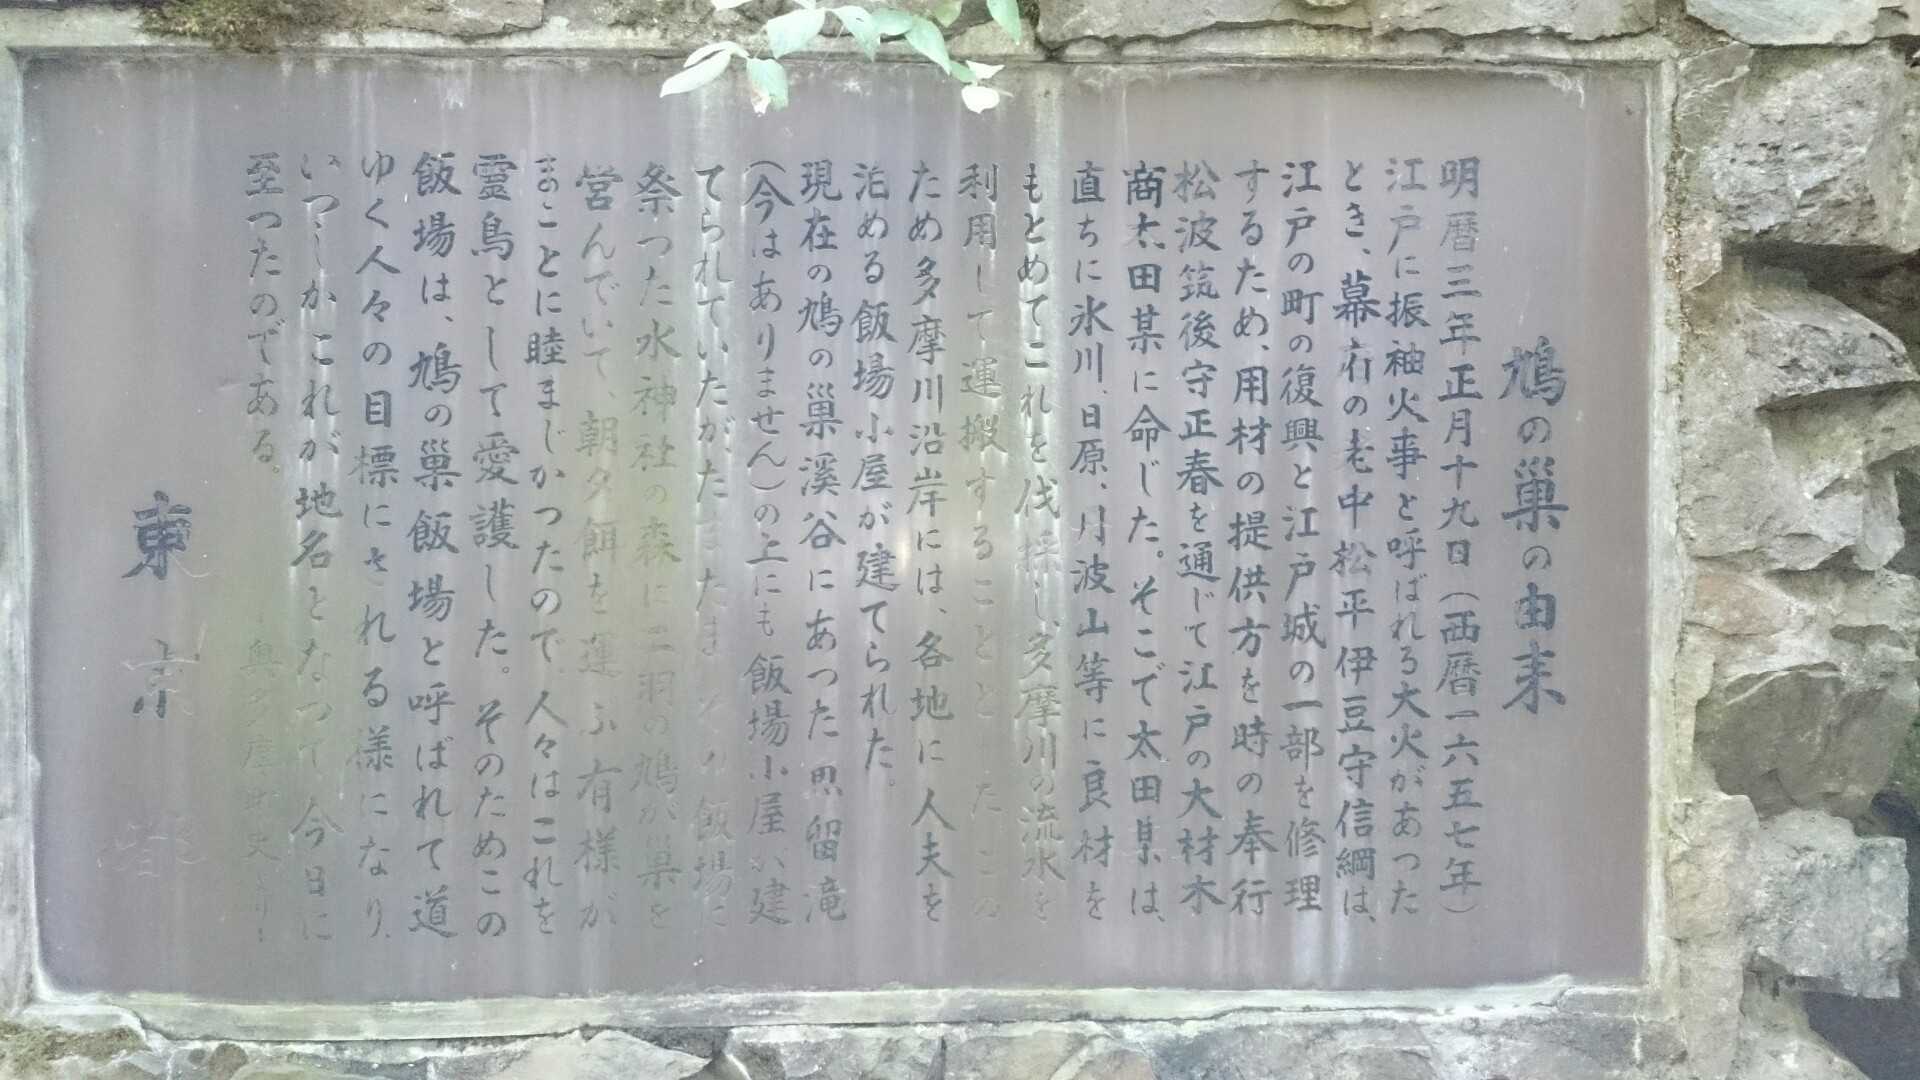 鳩の巣の由来
明暦三年正月十九日（西暦一六五七年）
江戸に振袖火事と呼ばれる大火があつた
とき、幕府の老中松平伊豆守信綱は、
江戸の町の復興と江戸城の一部を修理
するため、用材の提供方を時の奉行
松波筑後守正春を通じて江戸の大材木
商太田某に命じた。そこで太田某は、
直ちに氷川、日原、丹波山等に良材を
もとめてこれを伐採し、多摩川の流水を
利用して運搬することとした この
ため多摩川沿岸には、各地に人夫を
泊める飯場小屋が建てられた。
現在の鳩の巣溪谷にあつた 留滝
（今はありません）の上にも飯場小屋が建
てられていたが、たまたまその飯場に
祭つた水神社の森に二羽の鳩が巣を
営んでいて、朝夕餌を運ふ有様が
まことに睦まじかつたので、人々はこれを
霊鳥として愛護した。そのためこの
飯場は、鳩の巣飯場と呼ばれて道
ゆく人々の目標にされる様になり、
いつしかこれが地名となつて今日に
至つたのである。
ー奥多摩町史よりー
東京都